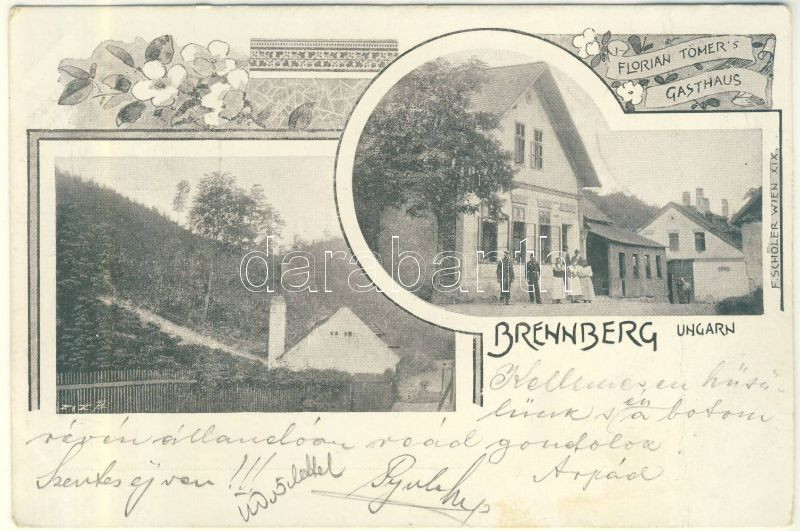 FLORIAN TÖMER'S
GASTHAUS
F. SCHÖLER WIEN XIX.
darabanth
BRENNBERG UNGARN
Kellemesen hüsü-
lünk s én a botom
révén állandóan reád gondolok
Szentes éj van !!! Árpád
Üdvözlettel